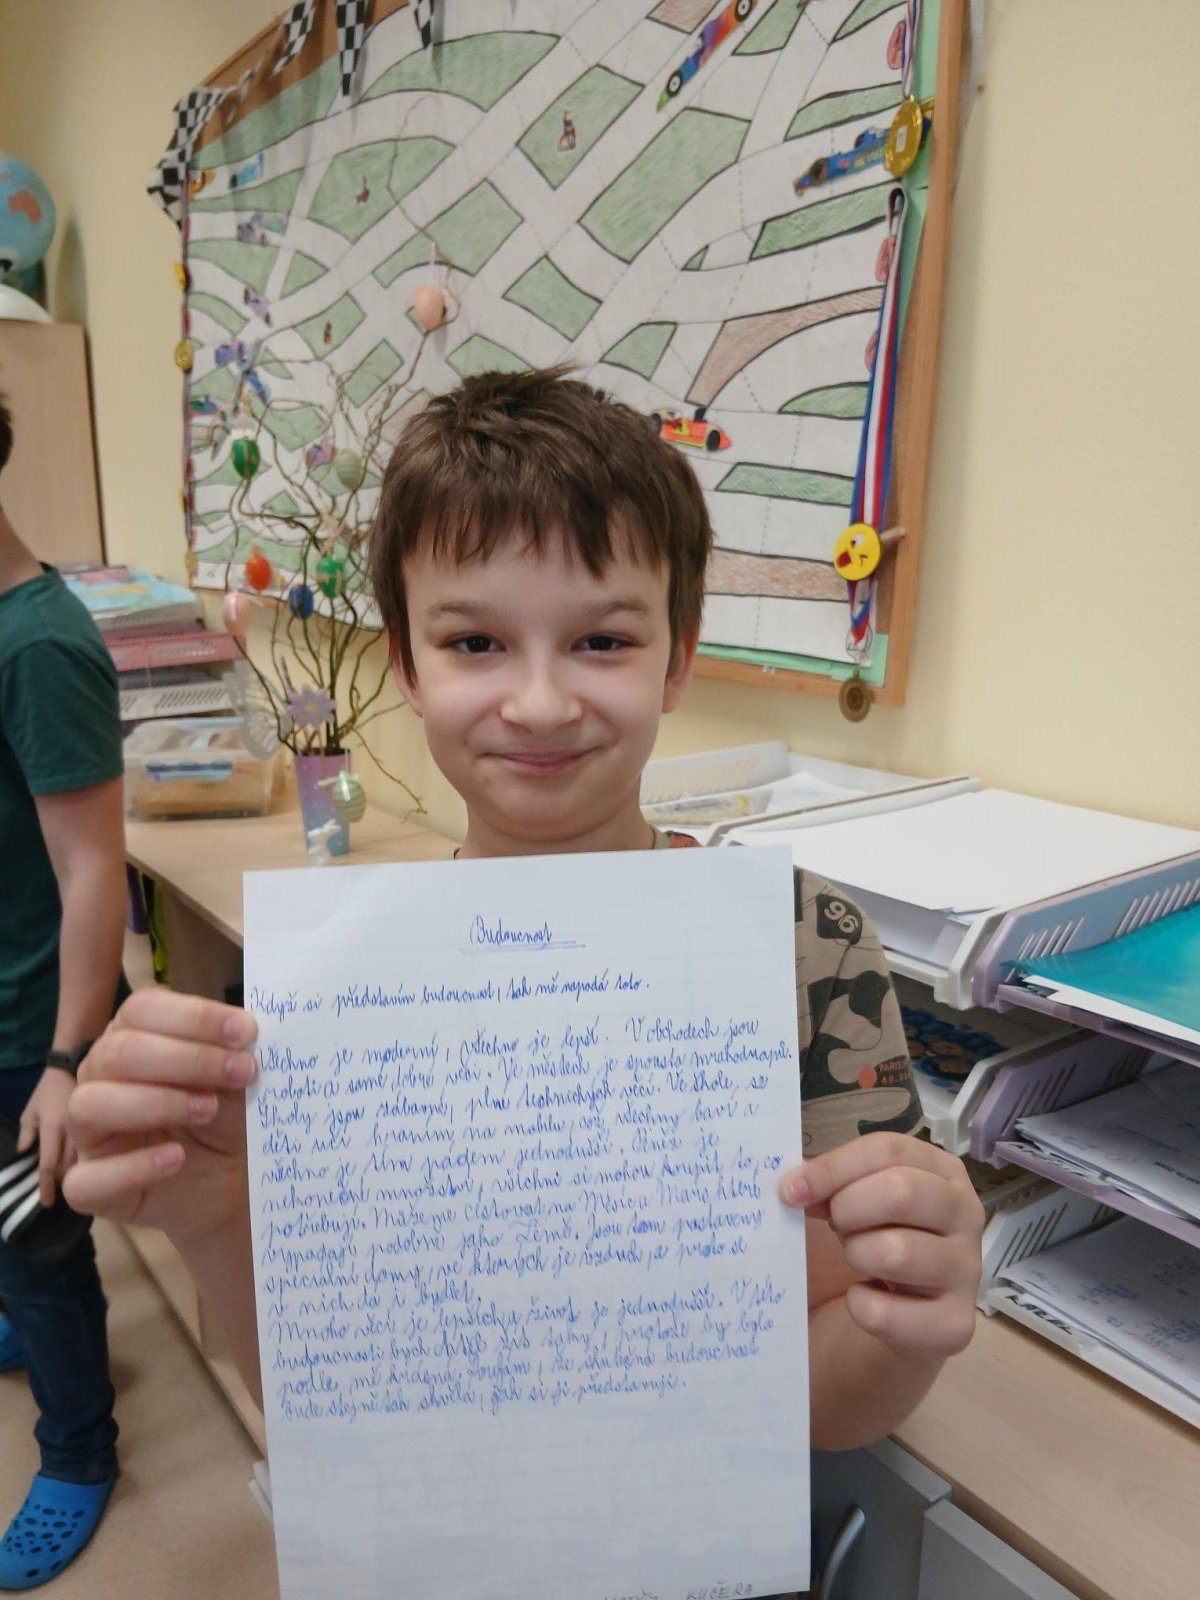 Budoucnost
Když si představím budoucnost, tak mě napadá toto.
Všechno je moderní, všechno je lepší. V obchodech jsou
roboti a samé dobré věci. Ve městech je spousta mrakodrapů.
Školy jsou zábavné, plné technických věcí. Ve škole se
děti učí hraním na mobilu, což všechny baví a
všechno je tím pádem jednodušší. Peněz je
nekonečné množství, všichni si mohou koupit to, co
potřebují. Můžeme cestovat na Měsíc a Mars, které
vypadají podobně jako Země. Jsou tam postaveny
speciální domy, ve kterých je vzduch, a proto se
v nich dá i bydlet.
Mnoho věcí je lepších, život je jednodušší. V této
budoucnosti bych chtěl žít, protože by byla
podle mě krásná. Doufám, že skutečná budoucnost
bude stejně tak skvělá, jak si ji představuji.
KUČERA
96
PARIS
KAREL